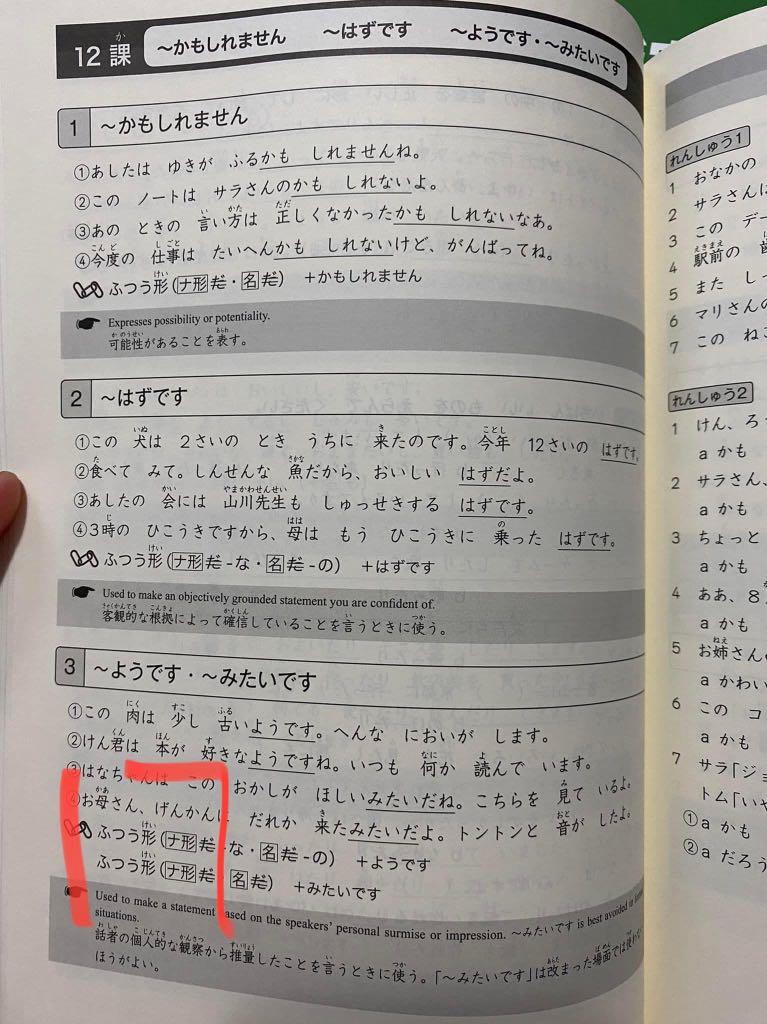 12 課 ～かもしれません ～はずです ～ようです・～みたいです
1 ～かもしれません
①あしたは ゆきが ふるかも しれませんね。
②この ノートは サラさんのかも しれないよ。
③あの ときの 言い方は 正しくなかったかも しれないなあ。
④今度の 仕事は たいへんかも しれないけど、がんばってね。
ふつう形(ナ形だ・名だ) +かもしれません
Expresses possibility or potentiality.
可能性があることを表す。
2 ～はずです
①この 犬は 2さいの とき うちに 来たのです。今年 12さいの はずです。
②食べて みて。しんせんな 魚だから、おいしい はずだよ。
③あしたの 会には 山川先生も しゅっせきする はずです。
④3時の ひこうきですから、母は もう ひこうきに 乗った はずです。
ふつう形(ナ形だ-な・名だ-の) +はずです
Used to make an objectively grounded statement you are confident of.
客観的な根拠によって確信していることを言うときに使う。
3 ～ようです・～みたいです
①この 肉は 少し 古いようです。へんな においが します。
②けん君は 本が 好きなようですね。いつも 何か 読んで います。
③はなちゃんは この おかしが ほしいみたいだね。こちらを 見て いるよ。
④お母さん、げんかんに だれか 来たみたいだよ。トントンと 音が したよ。
ふつう形(ナ形だ-な・名だ-の) +ようです
ふつう形(ナ形だ 名だ) +みたいです
Used to make a statement based on the speakers' personal surmise or impression. ～みたいです is best avoided in
situations.
話者の個人的な観察から推量したことを言うときに使う。「～みたいです」は改まった場面では使わ
ほうがよい。
れんしゅう1
1 おなかの
2 サラさんは
3 この デー
4 駅前の
5 また しっ
6 マリさんの
7 この ねこ
れんしゅう2
1 けん、ろ
a かも
2 サラさん、
a かも
3 ちょっと
a かも
4 ああ、8
a かも
5 お姉さんの
a かわい
6 この コ
a かも
7 サラ「ジョ
トム「いや
①a かも
②a だろう